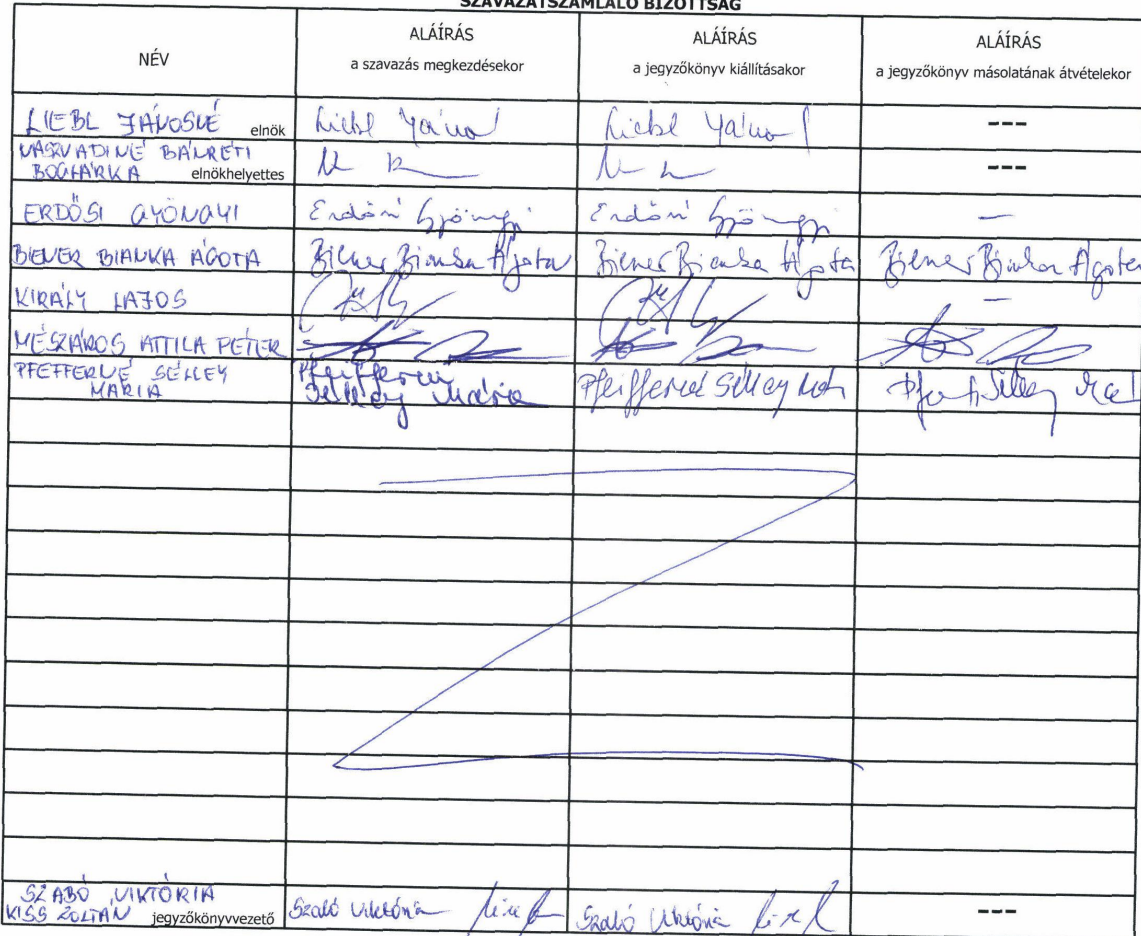 SZAVAZATSZÁMLÁLÓ BIZOTTSÁG
NÉV
ALÁÍRÁS
a szavazás megkezdésekor
ALÁÍRÁS
a jegyzőkönyv kiállításakor
ALÁÍRÁS
a jegyzőkönyv másolatának átvételekor
LIEBL JÁNOSNÉ elnök Liebl Liebl ---
VASRVADINÉ BÁNRÉTI
BOGLÁRKA elnökhelyettes ---
ERDŐSI GYÖNGYI Erdősi Gyöngyi Erdősi Gyöngyi —
BIENER BIANKA ÁGOTA Biener Bianka Ágota Biener Bianka Ágota Biener Bianka Ágota
KIRÁLY LAJOS —
MÉSZÁROS ATTILA PÉTER
PFEFFERNÉ SÉLLEY
MÁRIA Pfeifferné Sélley Mária Pfeifferné Sélley
SZABÓ VIKTÓRIA
KISS ZOLTÁN jegyzőkönyvvezető Szabó Viktória Szabó Viktória ---